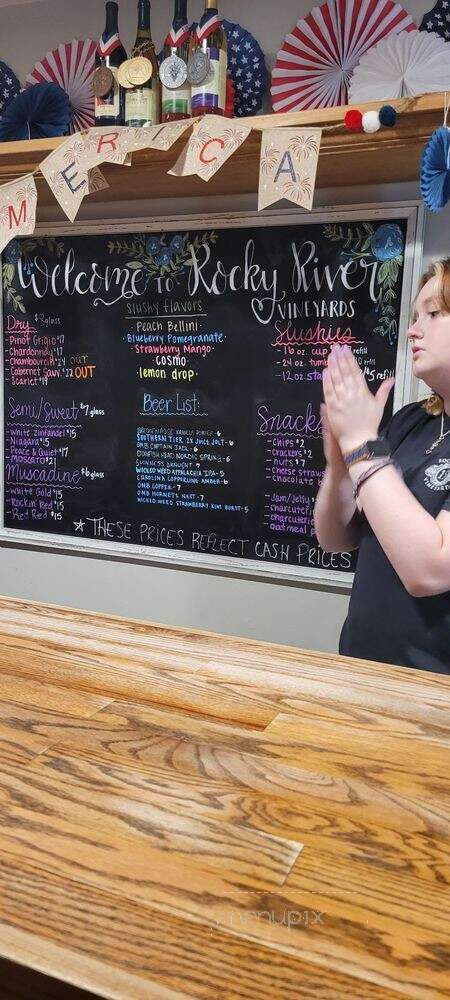 M E R I C A
Welcome to Rocky River
VINEYARDS
Dry $8 glass
- Pinot Grigio $17
- Chardonnay $17
- Chambourcin $24 OUT
- Cabernet Sauv. $22 OUT
- Scarlet $19
Semi/Sweet $7 glass
- White Zinfandel $15
- Niagara $15
- Peace & Quiet $17
- Moscato $21
Muscadine $6 glass
- White Gold $15
- Rockin' Red $15
- Red Red $15
Slushy flavors
Peach Bellini
Blueberry Pomegranate
Strawberry Mango
Cosmo
lemon drop
Beer List:
BRECKENRIDGE VANILLA PORTER - 6
SOUTHERN TIER 2X JUICE JOLT - 6
OMB CAPTAIN JACK - 6
DOGFISH HEAD NORDIC SPRING - 6
GUINNESS DRAUGHT - 7
WICKED WEED APPALACHIA IPA - 5
CAROLINA COPPERLINE AMBER - 6
OMB COPPER - 7
OMB HORNETS NEST - 7
WICKED WEED STRAWBERRY KIWI BURST - 5
Slushies
- 16 oz. cup refill
- 24 oz. tumb refill
- 12 oz. sta $5 refill
Snacks
- Chips $2
- Crackers $2
- nuts $7
- Cheese Straws
- Chocolate b
- Jam/Jelly
- charcuter
- charcuterie
- oatmeal p
★ THESE PRICES REFLECT CASH PRICES
menupix